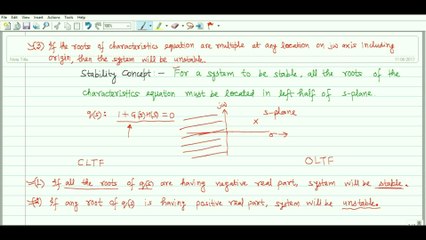 (3) If the roots of characteristics equation are multiple at any location on jω axis including
origin, then the system will be unstable.
Stability Concept - For a system to be stable, all the roots of the
characteristics equation must be located in left half of s-plane
q(s): 1+G(s)H(s)=0
jω
s-plane
x
σ →
CLTF
OLTF
(1) If all the roots of q(s) are having negative real part, system will be stable.
(2) If any root of q(s) is having positive real part, system will be unstable.